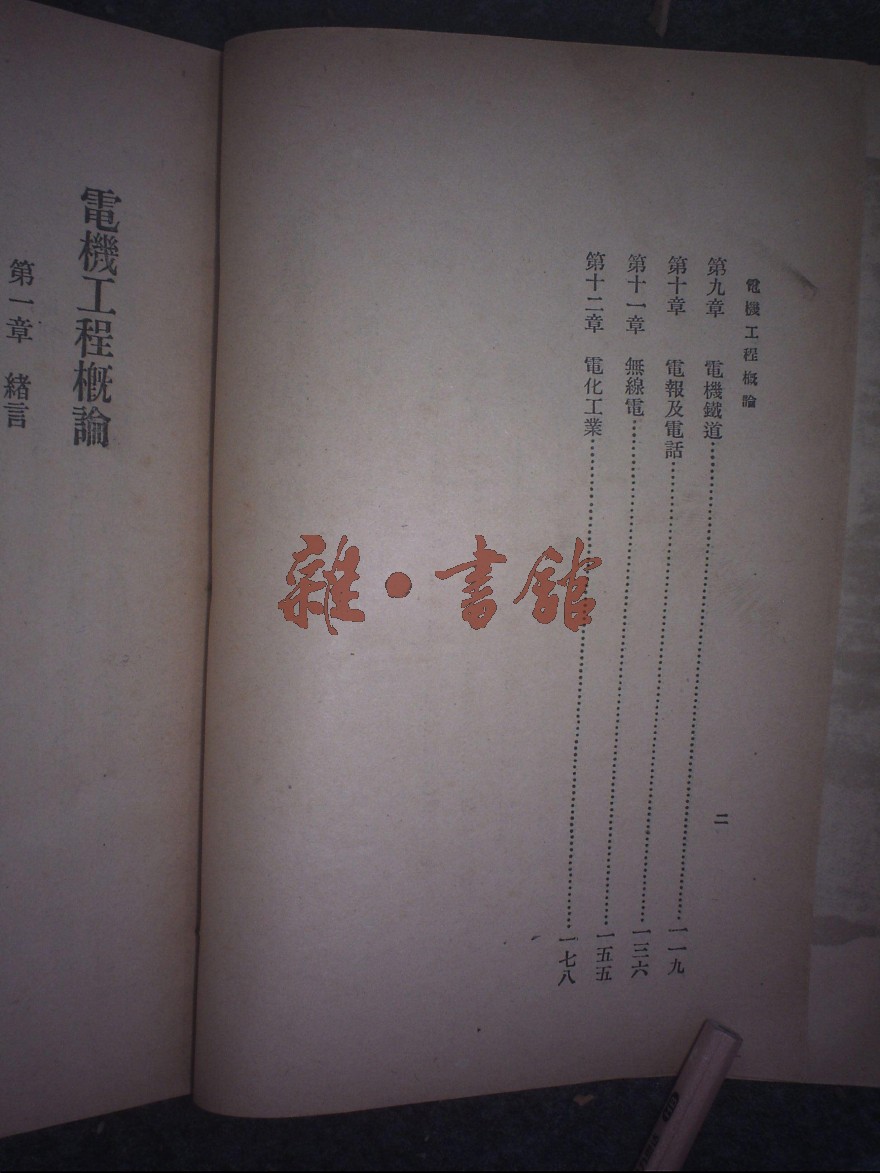 電機工程概論
第九章 電機鐵道 一一九
第十章 電報及電話 一三六
第十一章 無線電 一五五
第十二章 電化工業 一七八
二
電機工程概論
第一章 緒言
雜·書館